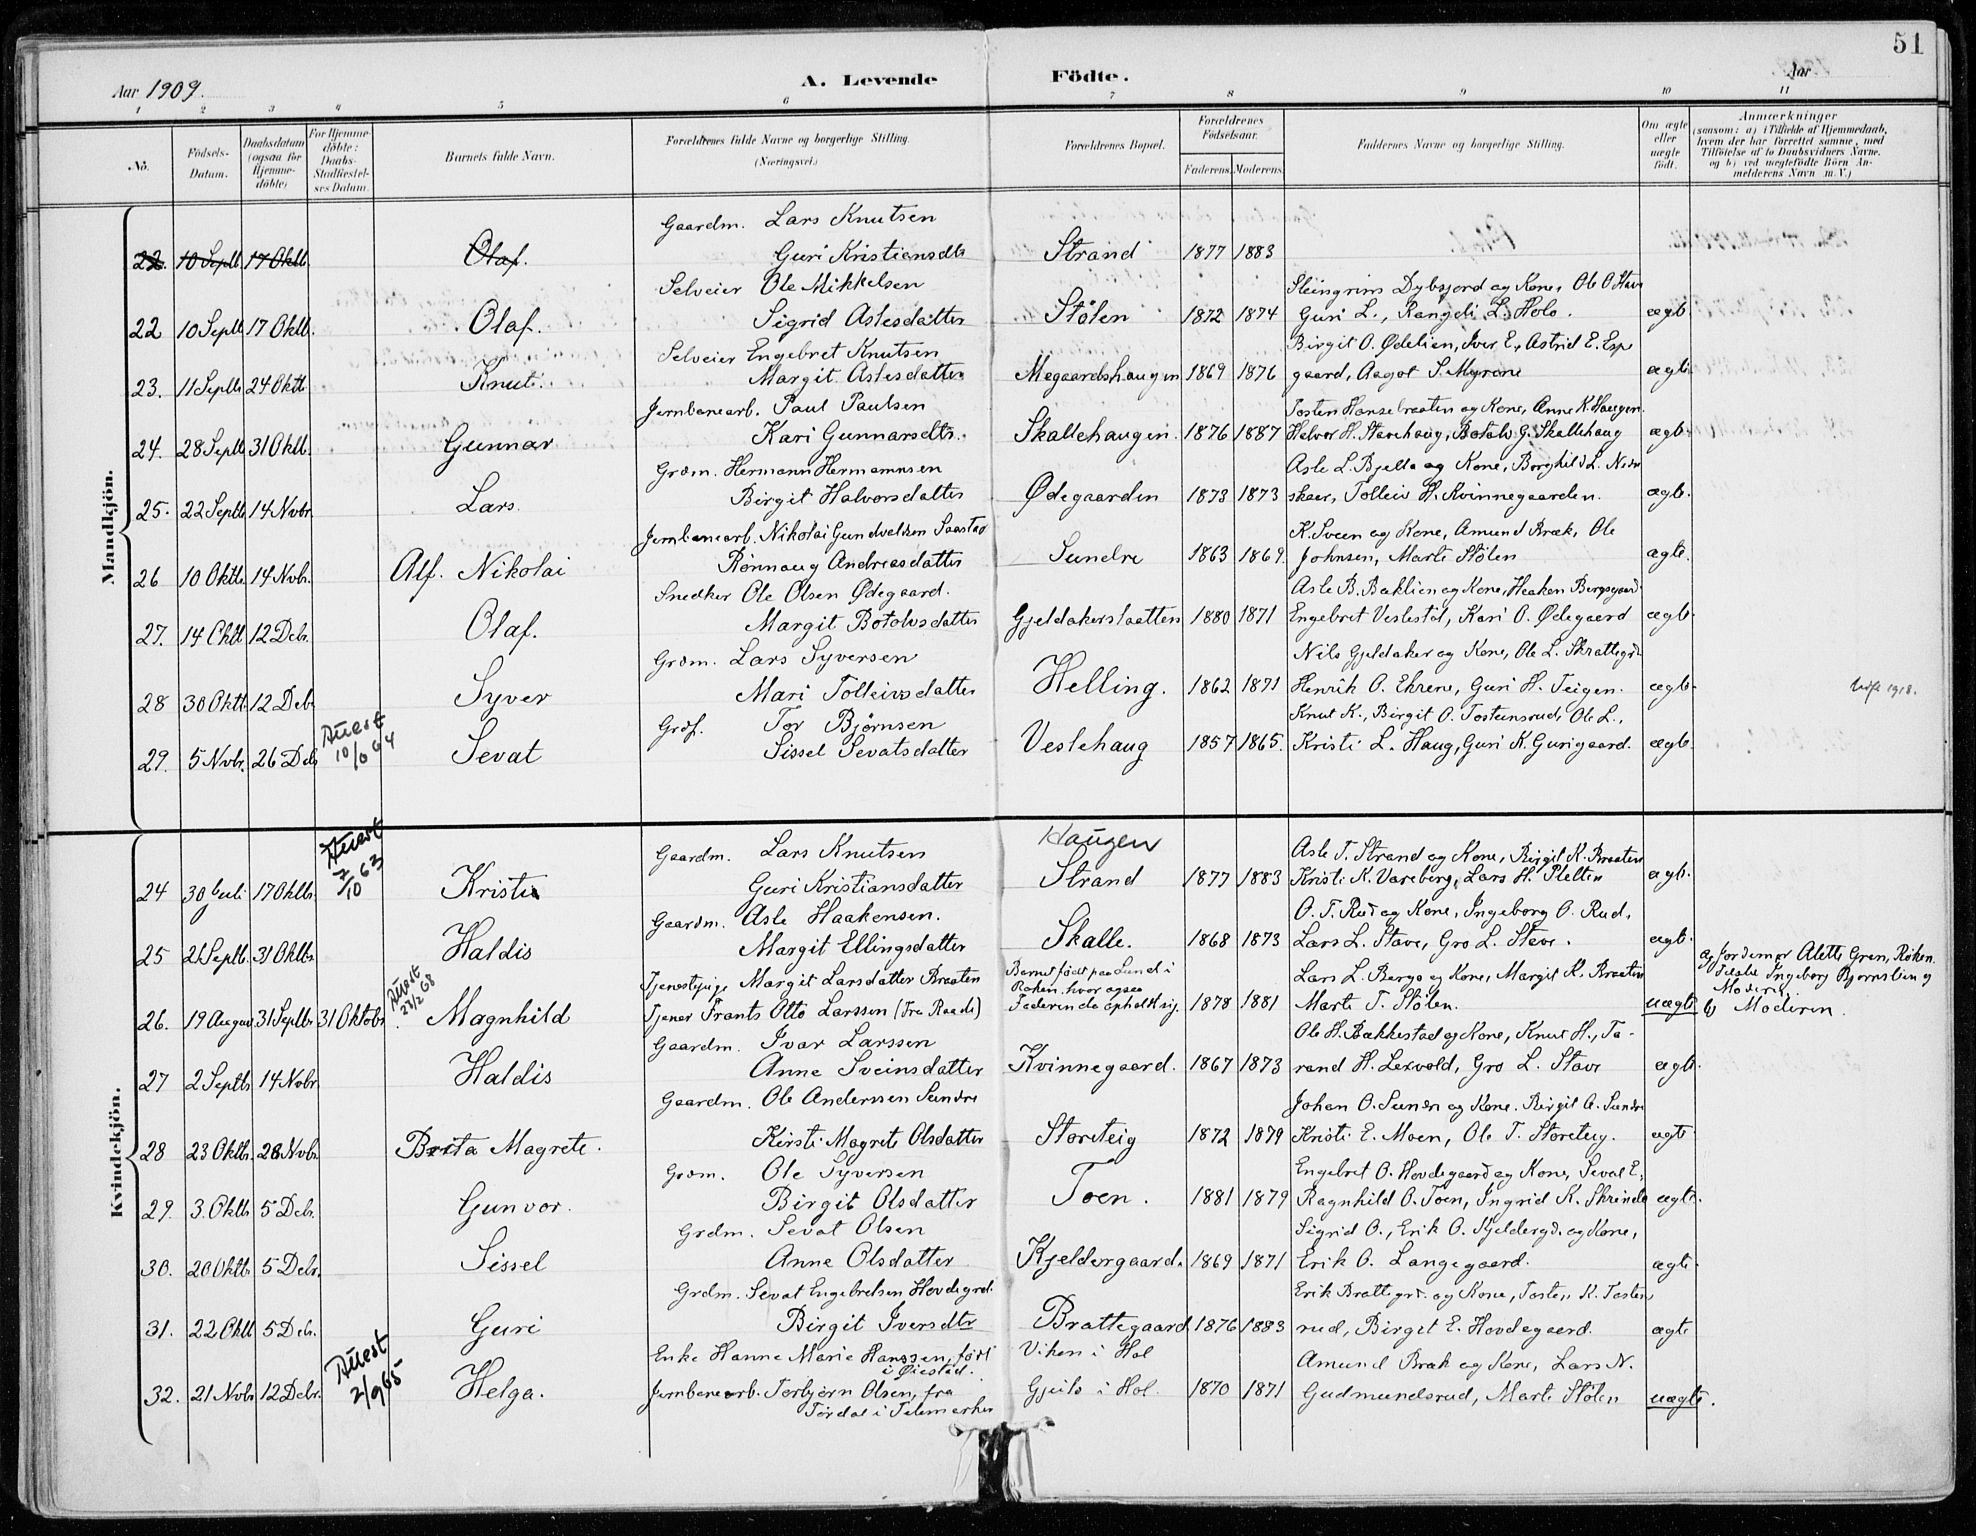 51
Aar 1909.
A. Levende Födte.
Aar
1 2 3 4 5 6 7 8 9 10 11
Nö.
Födsels-Datum.
Daabsdatum (ogsaa for Hjemme-döbte)
For Hjemme-döbte: Daabs-Stadfæstel-ses Datum.
Barnets fulde Navn.
Forældrenes fulde Navne og borgerlige Stilling. (Næringsvei.)
Forældrenes Bopæl.
Forældrenes Födselsaar.
Faderens. Moderens.
Faddernes Navne og borgerlige Stilling.
Om ægte eller uægte födt.
Anmærkninger
(saasom: a) i Tilfælde af Hjemmedaab, hvem der har forrettet samme, med Tilföielse af to Daabsvidners Navne. og b) ved uegtefödte Börn Anmelderens Navn m. V.)
Mandkjön.
Gaardm. Lars Knutsen
22. 10 Septb. 17 Oktb. Olaf. Guri Kristiansdtr Strand 1877 1883
Selveier Ole Mikkelsen Steingrim Dybsjord og Kone, Ole O Stave
22 10 Septb 17 Oktb. Olaf. Sigrid Aslesdatter Stölen 1872 1874 Guri L., Rangdi L. Holo. ægte
Selveier Engebret Knutsen Birgit O. Ødelien, Iver E., Astrid E. Espe
23. 11 Septb 24 Oktb Knut. Margit Aslesdatter Megaardshaugen 1869 1876 gaard, Aagot S. Myrene ægte
Jernbanearb. Paul Paulsen Tosten Hansebraaten og Kone, Anne K. Haugen
24. 28 Septb 31 Oktb. Gunnar Kari Gunnarsdtr. Skallehaugen 1876 1887 Helvor H. Stavehaug, Botolv G. Skallehaug ægte
Grdm. Hermann Hermannsen Asle L. Bjella og Kone, Borghild L. Neder
25. 22 Septb 14 Novbr. Lars. Birgit Halvorsdatter Ødegaarden 1873 1873 skaer, Tolleiv H. Kvinnegaarden. ægte
Jernbanearb. Nikolai Gundvelsen Saastad K. Sveen og Kone, Amund Bræk, Ole
26 10 Oktb 14 Novbr. Alf. Nikolai Rönnaug Andreasdatter Sundre 1863 1869 Johnsen, Marte Stølen ægte
Snedker Ole Olsen Ødegaard. Asle B. Baklien og Kone, Haaken Bergsgaard
27. 14 Oktb 12 Debr. Olaf. Margit Botolvsdatter Gjeldakerslaatten 1880 1871 Engebret Veslestöl, Kari O. Ødegaard ægte
Grdm. Lars Syversen Nils Gjeldaker og Kone, Ole L. Skrattegrd.
28 30 Oktb 12 Deb. Syver Mari Tolleivsdatter Helling. 1862 1871 Henrik O. Ehrene, Guri H. Teigen. ægte 1918.
Attest 10/6 64
Grdf. Tor Bjørnsen Knut K., Birgit O. Tosteinsrud, Ole L.,
29. 5 Novbr. 26 Deb Sevat Sissel Sevatsdatter Veslehaug 1857 1865. Kristi L. Haug, Guri K. Gurigaard. ægte
Kvindekjön.
Attest 7/10 63
Haugen
Gaardm. Lars Knutsen Asle T. Strand og Kone, Birgit K. Braaten
24 30 Juli 17 Oktbr. Kristi Guri Kristiansdatter Strand 1877 1883 Kristi K. Vareberg, Lars H. Pletten ægte.
Gaardm. Asle Haakensen. O. T. Rud og Kone, Ingeborg O. Rud,
25 21 Septb. 31 Oktbr. Haldis Margit Ellingsdatter Skalle. 1868 1873 Lars L. Stave, Gro L. Stave. ægte.
Attest 23/2 68
Tjenestepige Margit Larsdatter Braaten Barnet født paa Lund i Røken, hvor ogsaa Lars L. Berge og Kone, Margit K. Braaten a) Jordemor Alette Gren, Røken.
26. 19 August 31 Septbr 31 Oktobr. Magnhild Tjener Frants Otto Larssen (Fra Raade) Faderen da opholdt sig. 1878 1881 Marte T. Stølen. uægte Ingeborg Bjørnslien og Moderen b) Moderen.
Gaardm. Ivar Larssen Ole H. Bakkestad og Kone, Knut H., Ta-
27 2 Septb 14 Novbr. Haldis Anne Sveinsdatter Kvinnegaard. 1867 1873 rand H. Lexvold, Gro L. Stave ægte.
Gaardm. Ole Anderssen Sundre Johan O. Sundre og Kone, Birgit A. Sundre
28 23 Oktbr. 28 Novbr. Brita Magrete. Kirsti Magrete Olsdatter Storeteig 1872 1879 Kristi E. Moen, Ole T. Storeteig. ægte
Grdm. Ole Syversen Engebret O. Hovdegaard og Kone, Sevat E.,
29. 3. Oktb 5 Debr. Gunvor. Birgit Olsdatter Toen. 1881 1879 Ragnhild O. Toen, Ingrid K. Skrinde ægte.
Grdm. Sevat Olsen Sigrid O., Erik O. Kjeldergd. og Kone,
30. 20 Oktb 5 Debr. Sissel Anne Olsdatter Kjeldergaard. 1869 1871 Erik O. Langegaard. ægte
Grdm. Sevat Engebretsen Hovdegrd. Erik Brattegrd. og Kone, Tosten K. Tosten
31. 22 Oktb 5 Debr. Guri Birgit Iversdtr Brattegaard 1876 1883 rud, Birgit E. Hovdegaard. ægte
Attest 2/9 65
Enke Hanne Marie Hanssen, født i Øiestad. Viken i Hol Amund Bræk og Kone, Lars N.
32. 21 Novbr 12 Debr. Helga. Jernbanearb. Torbjørn Olsen, fra Tørdal i Telemarken Gjeilo i Hol. 1870 1871 Gudmundsrud, Marte Stølen uægte.